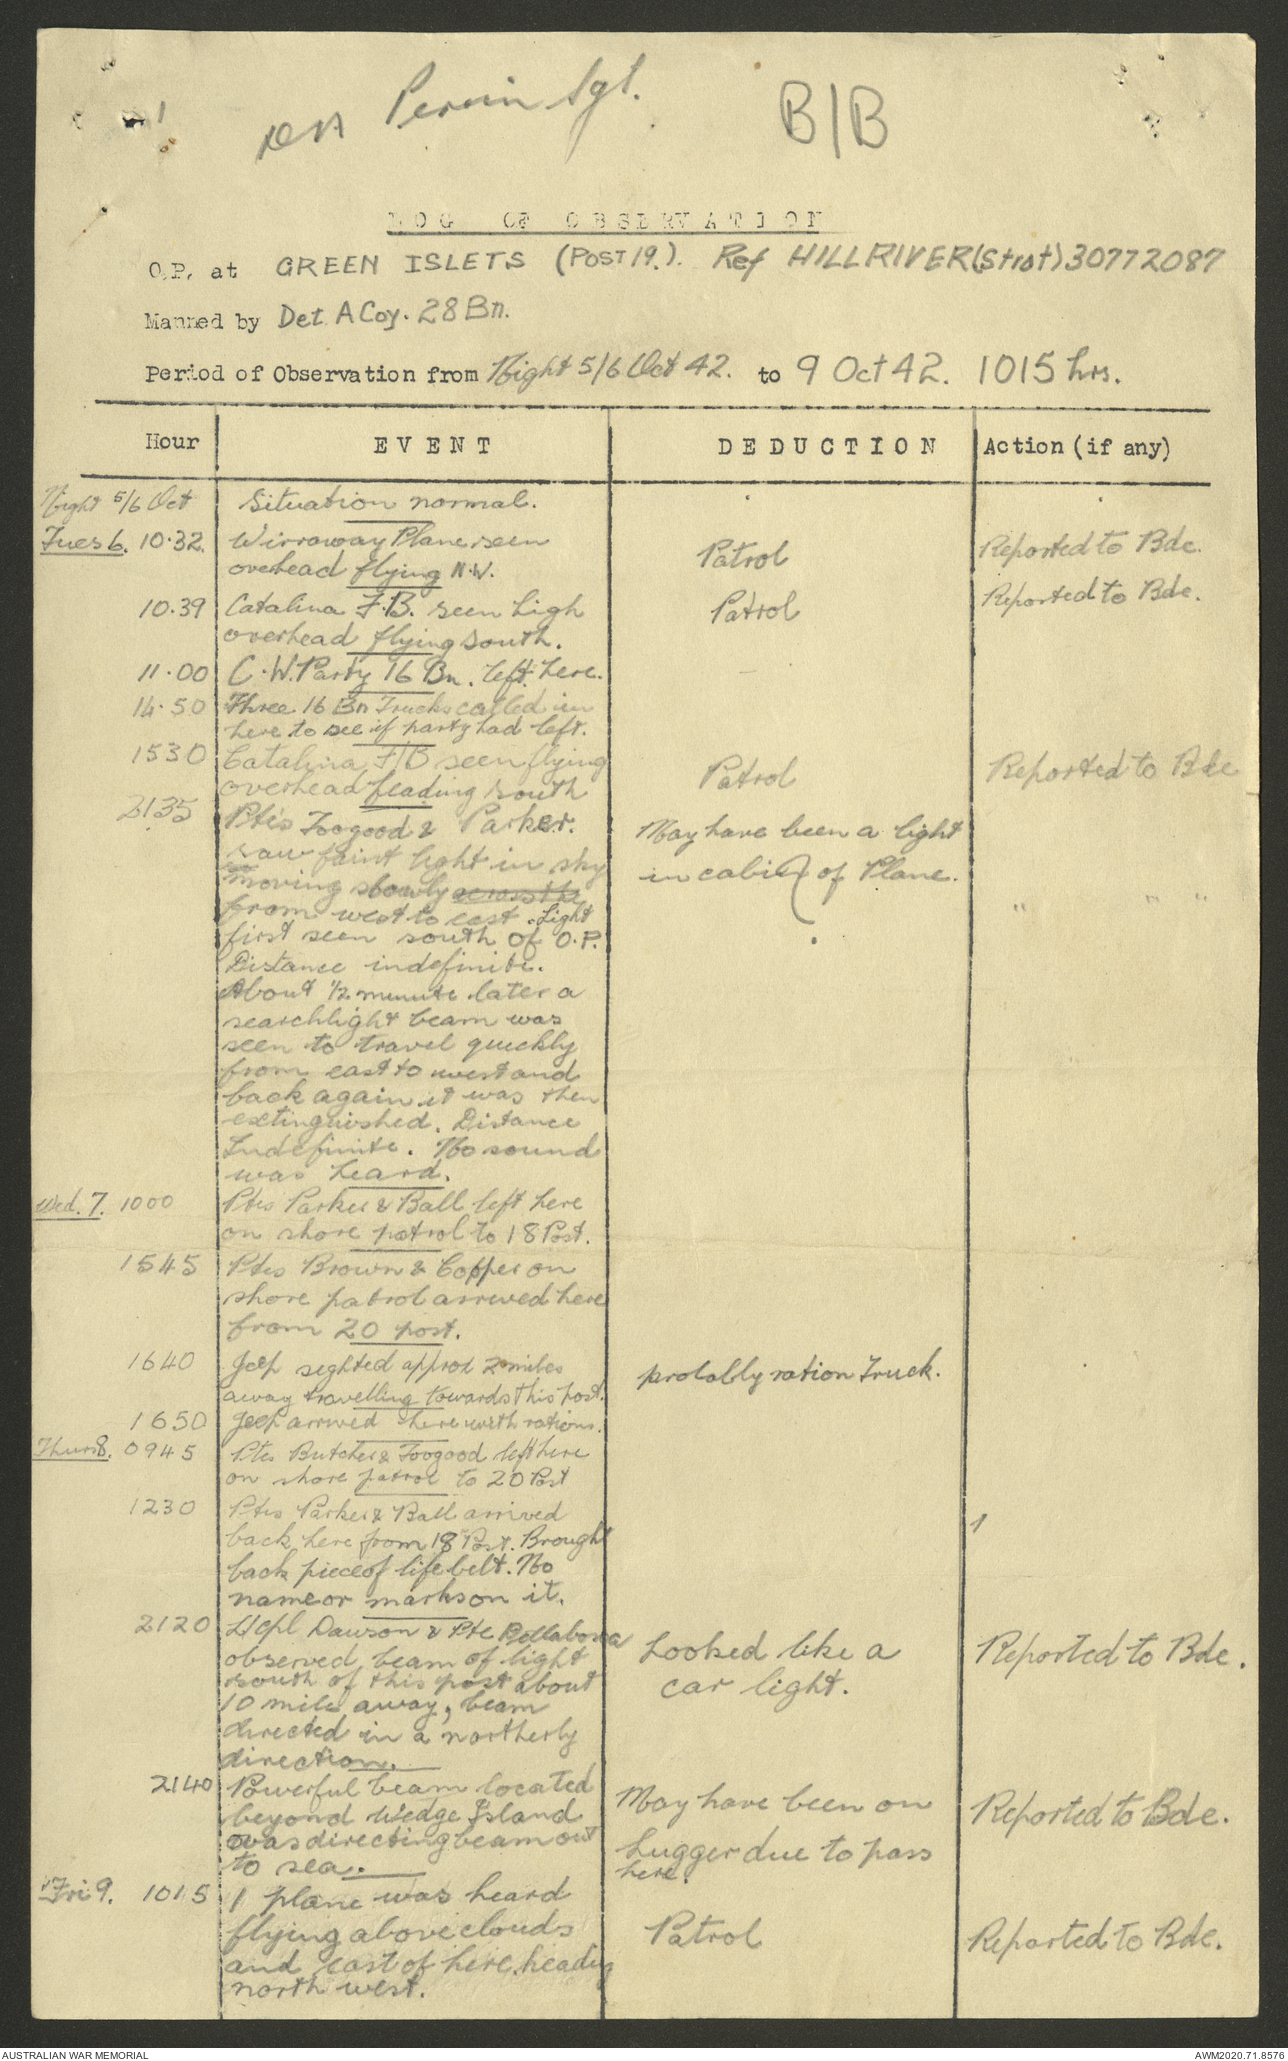 Perrin Sgt.
B/B
LOG OF OBSERVATION
O.P. at GREEN ISLETS (POST 19.). Ref HILLRIVER (Strat) 30772087
Manned by Det A Coy. 28 Bn.
Period of Observation from Night 5/6 Oct 42. to 9 Oct 42. 1015 hrs.
Hour EVENT DEDUCTION Action (if any)
Night 5/6 Oct Situation normal.
Tues 6. 10.32. Wirraway Plane seen
overhead flying N.W. Patrol Reported to Bde.
10.39 Catalina F.B. seen high
overhead flying South. Patrol Reported to Bde.
11.00 C.W. Party 16 Bn. left here.
14.50 Three 16 Bn Trucks called in
here to see if party had left.
1530 Catalina F/B seen flying
overhead heading South Patrol Reported to Bde
2135 Ptes Toogood & Parker.
saw faint light in sky
moving slowly across the
from west to east. Light
first seen south of O.P.
Distance indefinite.
About 1/2 minute later a
searchlight beam was
seen to travel quickly
from east to west and
back again it was then
extinguished. Distance
Indefinite. No sound
was heard.
May have been a light
in cabin of Plane.
" " "
Wed. 7. 1000 Ptes Parker & Ball left here
on shore patrol to 18 Post.
1545 Ptes Brown & Copper on
shore patrol arrived here
from 20 post.
1640 Jeep sighted approx 2 miles
away travelling towards this post. probably ration Truck.
1650 Jeep arrived here with rations.
Thurs 8. 0945 Ptes Butcher & Toogood left here
on shore patrol to 20 Post
1230 Ptes Parker & Ball arrived
back here from 18 Post. Brought
back piece of life belt. No
name or marks on it.
2120 L/Cpl Dawson & Pte
observed beam of light
south of this post about
10 mile away, beam
directed in a northerly
direction.
Looked like a
car light.
Reported to Bde.
2140 Powerful beam located
beyond Wedge Island
was directing beam out
to sea.
May have been on
Lugger due to pass
here.
Reported to Bde.
Fri 9. 1015 1 plane was heard
flying above clouds
and east of here, heading
north west.
Patrol
Reported to Bde.
AUSTRALIAN WAR MEMORIAL AWM2020.71.8576